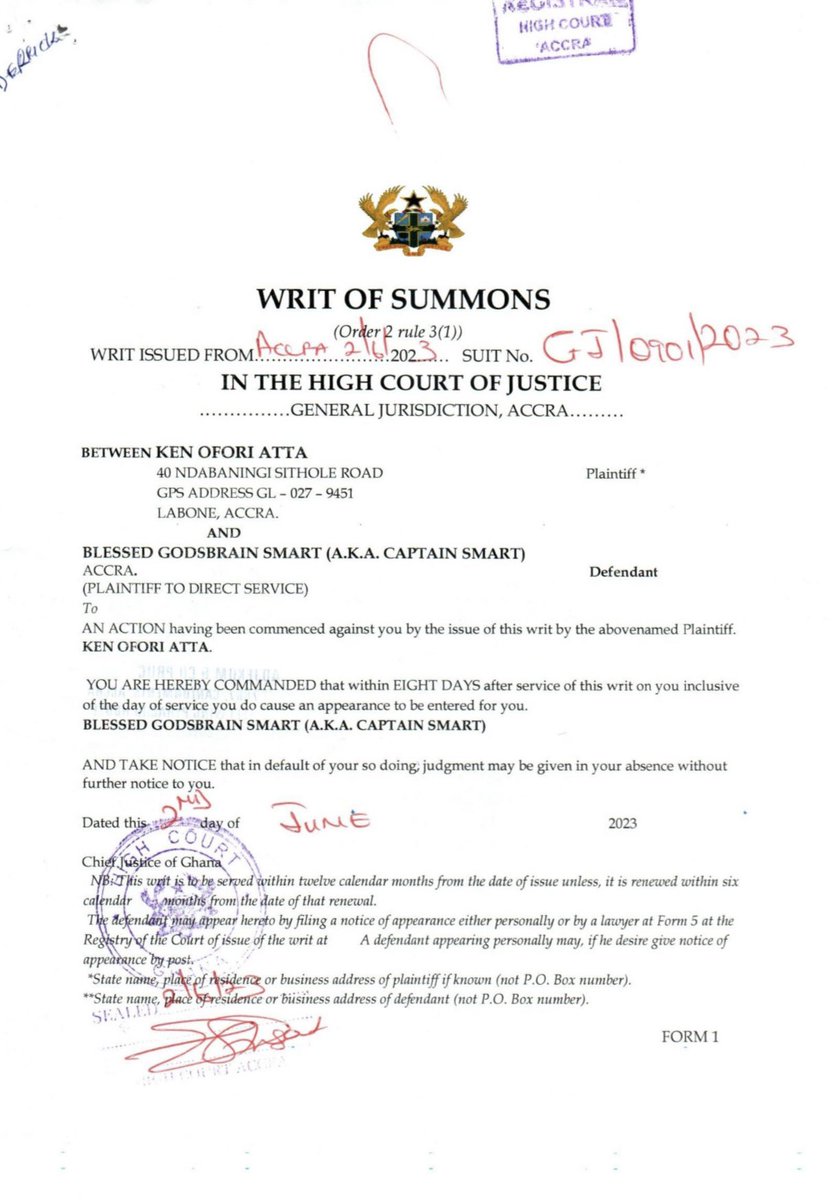 DERRICK
REGISTRAR
HIGH COURT
ACCRA
WRIT OF SUMMONS
(Order 2 rule 3(1))
WRIT ISSUED FROM ACCRA 2/6/2023 SUIT No. GJ/0901/2023
IN THE HIGH COURT OF JUSTICE
……………GENERAL JURISDICTION, ACCRA………
BETWEEN KEN OFORI ATTA
40 NDABANINGI SITHOLE ROAD Plaintiff *
GPS ADDRESS GL – 027 – 9451
LABONE, ACCRA.
AND
BLESSED GODSBRAIN SMART (A.K.A. CAPTAIN SMART)
ACCRA. Defendant
(PLAINTIFF TO DIRECT SERVICE)
To
AN ACTION having been commenced against you by the issue of this writ by the abovenamed Plaintiff.
KEN OFORI ATTA.
YOU ARE HEREBY COMMANDED that within EIGHT DAYS after service of this writ on you inclusive
of the day of service you do cause an appearance to be entered for you.
BLESSED GODSBRAIN SMART (A.K.A. CAPTAIN SMART)
AND TAKE NOTICE that in default of your so doing, judgment may be given in your absence without
further notice to you.
Dated this 2ND day of JUNE 2023
HIGH COURT
GHANA
Chief Justice of Ghana
NB: This writ is to be served within twelve calendar months from the date of issue unless, it is renewed within six
calendar months from the date of that renewal.
The defendant may appear hereto by filing a notice of appearance either personally or by a lawyer at Form 5 at the
Registry of the Court of issue of the writ at A defendant appearing personally may, if he desire give notice of
appearance by post.
*State name, place of residence or business address of plaintiff if known (not P.O. Box number).
**State name, place of residence or business address of defendant (not P.O. Box number).
SEALED 2/6/23
HIGH COURT ACCRA
FORM 1